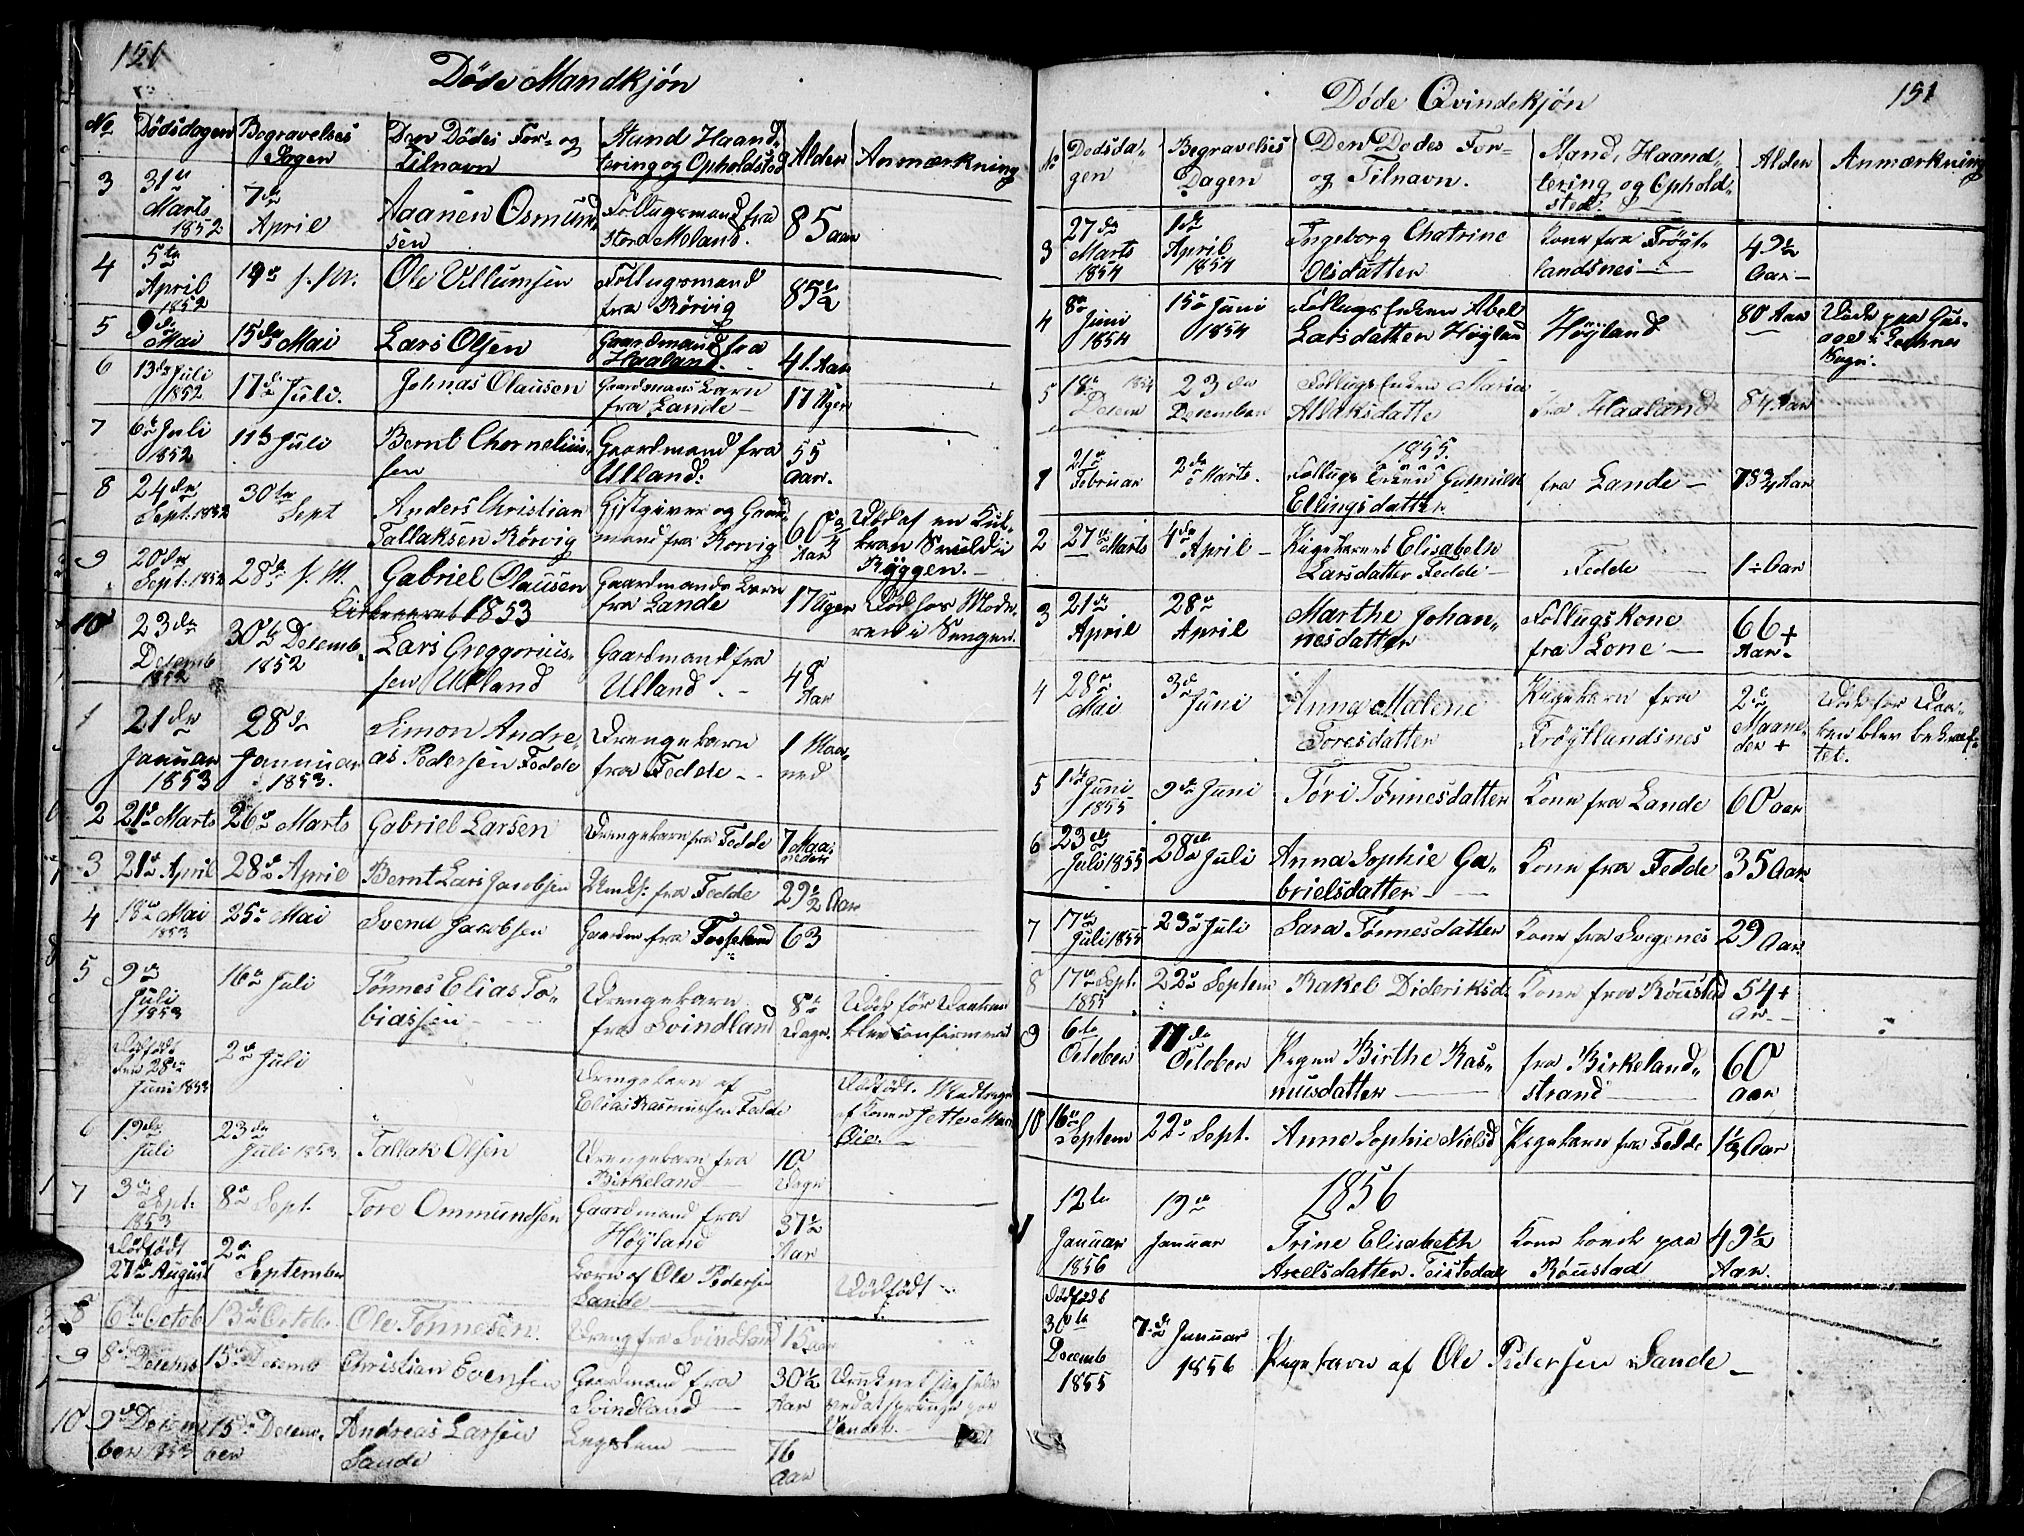 151
Døde Mandkjøn
No Dødsdagen Begravelses Dagen Den Dødes For- og Tilnavn Stand Haandtering og Opholdsted Alder Anmærkning
3 31te Marts 1852 7de April Aanen Osmundsen Follugsmand fra Store Meland. 85 aar
4 5te April 1852 Ole Villumsen Follugsmand fra Rørvig 85½
5 9de Mai 15de Mai Lars Olsen Gaardmand fra Haaland. 41 Aar
6 13de Juli 1852 17de Juli. Johnas Olausen Gaardmans Barn fra Lande 17 Uger
7 6te Juli 1852 11te Juli Bernt Chorneliussen Gaardmand fra Ulland. 55 Aar.
8 24de Sept. 1852 30te Sept Anders Christian Tallaksen Rørvig Giftgiver og Gaardmand fra Rørvig 60¾ Aar Død af en Ryggen.
9 20de Sept. 1852 28de Gabriel Olausen Gaardmands Barn fra Lande 17 Uger Død hos Moderen i Sengen.
Kirkeaaret 1853
10 23de Desemb 1852 30te Desemb. 1852 Lars Greggoriussen Ulland Gaardmand fra Ulland 48 Aar
1 21de Januar 1853 28de Januar 1853. Simon Andreas Pedersen Fedde Drengebarn fra Fedde 1 Maaned
2 21de Marts 26de Marts Gabriel Larsen Drengebarn fra Fedde 7 Maaneder
3 21de April 28de April Bernt Lars Jacobsen fra Fedde 29½ Aar
4 18de Mai 1853 25de Mai Svend Jacobsen Gaardm fra Fosseland 63
5 9de Juli 1853 16de Juli Tønnes Elias Tobiassen Drengebarn fra Svindland 8te Dage. Død før Daaben blev confirmeret
Dødfødt den 28de Juni 1853 2de Juli Drengebarn af Elias Rasmussen Fedde Dødfødt.
6 19de Juli 23de Juli 1853 Tallak Olsen Drengebarn fra Birkeland 10 Dage
7 3de Sept. 1853 8de Sept. Tore Ommundsen Gaardmand fra Høyland 37½ Aar
Dødfødt 27de August 2de September Barn af Ole Pedersen Lande Dødfødt
8 6te Octob 13de Octobr Ole Tønnesen Dreng fra Svindland 15 aar
9 8de Desemb 15de Desemb Christian Evensen Gaardmand fra Svindland 30½ Aar Druknet sig selv ved at springe paa Vandet.
10 9de Desember 15de Desember Andreas Larsen Lande Legslem 76 Aar
151
Døde Qvindekjøn
No Dødsdagen Begravelses Dagen Den Dødes For- og Tilnavn. Stand, Haandtering og Opholdsted. Alder Anmærkning
3 27de Marts 1854 1de April 1854 Ingeborg Chatrine Olsdatter Kone fra Frøytlandsnes 49½ Aar
4 8de Juni 1854 15de Juni 1854 Follugs Enken Abel Larsdatter Høyland Høyland 80 Aar Døde paa Sogn.
5 18de 1854 Desem 23de Desember Follugs Enken Maria Allaksdatte fra Haaland 84 Aar
1855
1 21de Februar 2de Marts. Follugs Enken Gunnild Ellingsdatter fra Lande 78¾ Aar
2 27de Marts 4de April Pigebarnet Elisabeth Larsdatter Fedde Fedde 1 Aar
3 21de April 28de April Marthe Johannesdatter Follugskone fra Lone 66 Aar
4 28de Mai 3de Juni Anna Malene Toresdatter Pigebarn fra Frøytlandsnes 2de Maaneder Død før Daaben blev bekræftet.
5 1de Juni 1855 9de Juni Tøri Tønnesdatter Kone fra Lande 60 Aar
6 23de Juli 1855 28de Juli Anna Sophie Gabrielsdatter Kone fra Fedde 35 Aar
7 17de Juli 1855 23de Juli Sara Tønnesdatter Kone fra Svegenes 29 Aar
8 17de Sept. 1855 22de Septem Rakel Dideriksd. Kone fra Røustad 54 Ar
9 6te October 11de October Pigen Birthe Rasmusdatter fra Birkelandstrand 60 Aar
10 16de Septem 22de Sept. Anne Sophie Nielsd Pigebarn fra Fedde 1½ Aar
1856
12te Januar 1856 19de Januar Trine Elisabeth Axelsdatter Teistedal Kone boende paa Røustad 49½ Aar.
Dødfødt 30te Decemb 1855 7de Januar 1856 Pigebarn af Ole Pedersen Lande